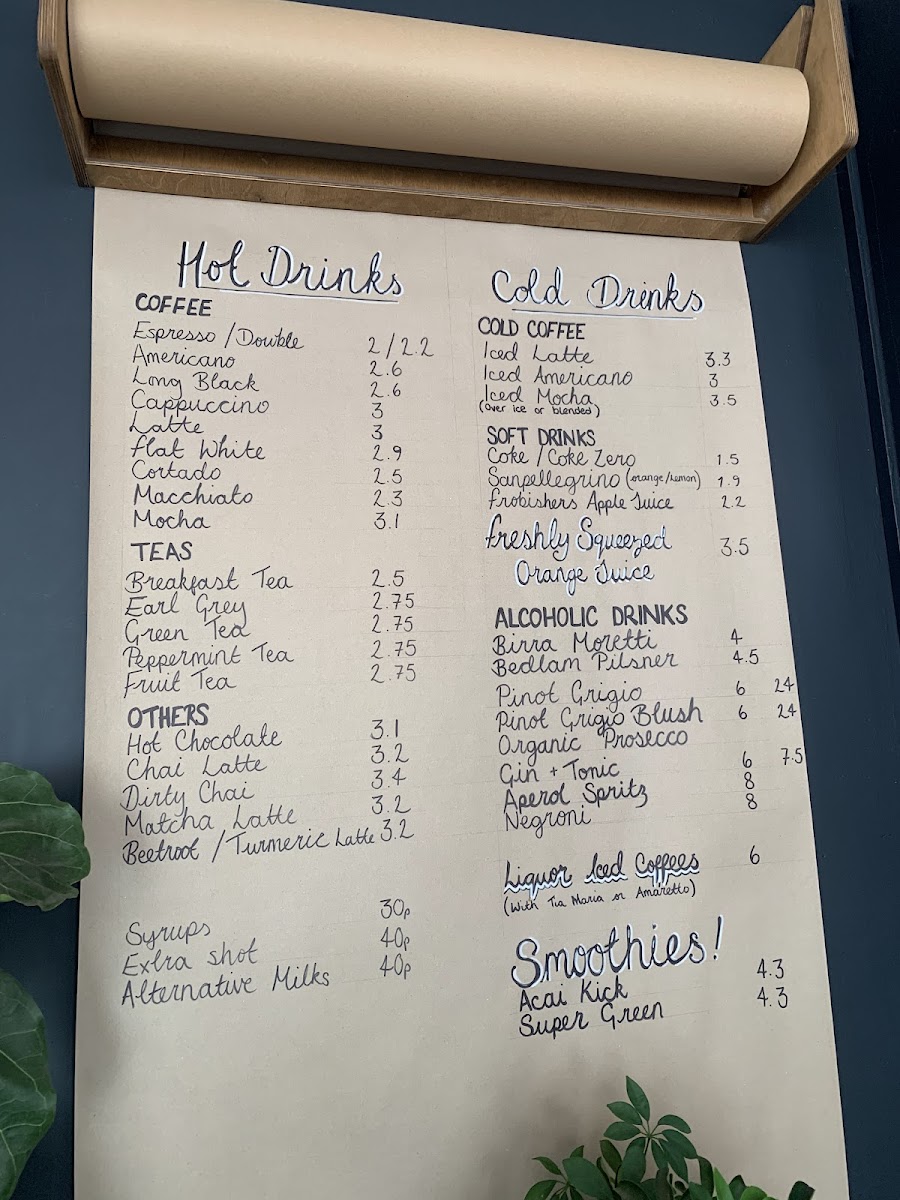 Hot Drinks
COFFEE
Espresso / Double 2 / 2.2
Americano 2.6
Long Black 2.6
Cappuccino 3
Latte 3
flat White 2.9
Cortado 2.5
Macchiato 2.3
Mocha 3.1
TEAS
Breakfast Tea 2.5
Earl Grey 2.75
Green Tea 2.75
Peppermint Tea 2.75
Fruit Tea 2.75
OTHERS
Hot Chocolate 3.1
Chai Latte 3.2
Dirty Chai 3.4
Matcha Latte 3.2
Beetroot / Turmeric Latte 3.2
Syrups 30p
Extra shot 40p
Alternative Milks 40p
Cold Drinks
COLD COFFEE
Iced Latte 3.3
Iced Americano 3
Iced Mocha 3.5
(over ice or blended)
SOFT DRINKS
Coke / Coke Zero 1.5
Sanpellegrino (orange/Lemon) 1.9
frobishers Apple Juice 2.2
freshly Squeezed 3.5
Orange Juice
ALCOHOLIC DRINKS
Birra Moretti 4
Bedlam Pilsner 4.5
Pinot Grigio 6 24
Pinot Grigio Blush 6 24
Organic Prosecco 7.5
Gin + Tonic 6
Aperol Spritz 8
Negroni 8
Liquor Iced Coffees 6
(with Tia Maria or Amaretto)
Smoothies!
Acai Kick 4.3
Super Green 4.3